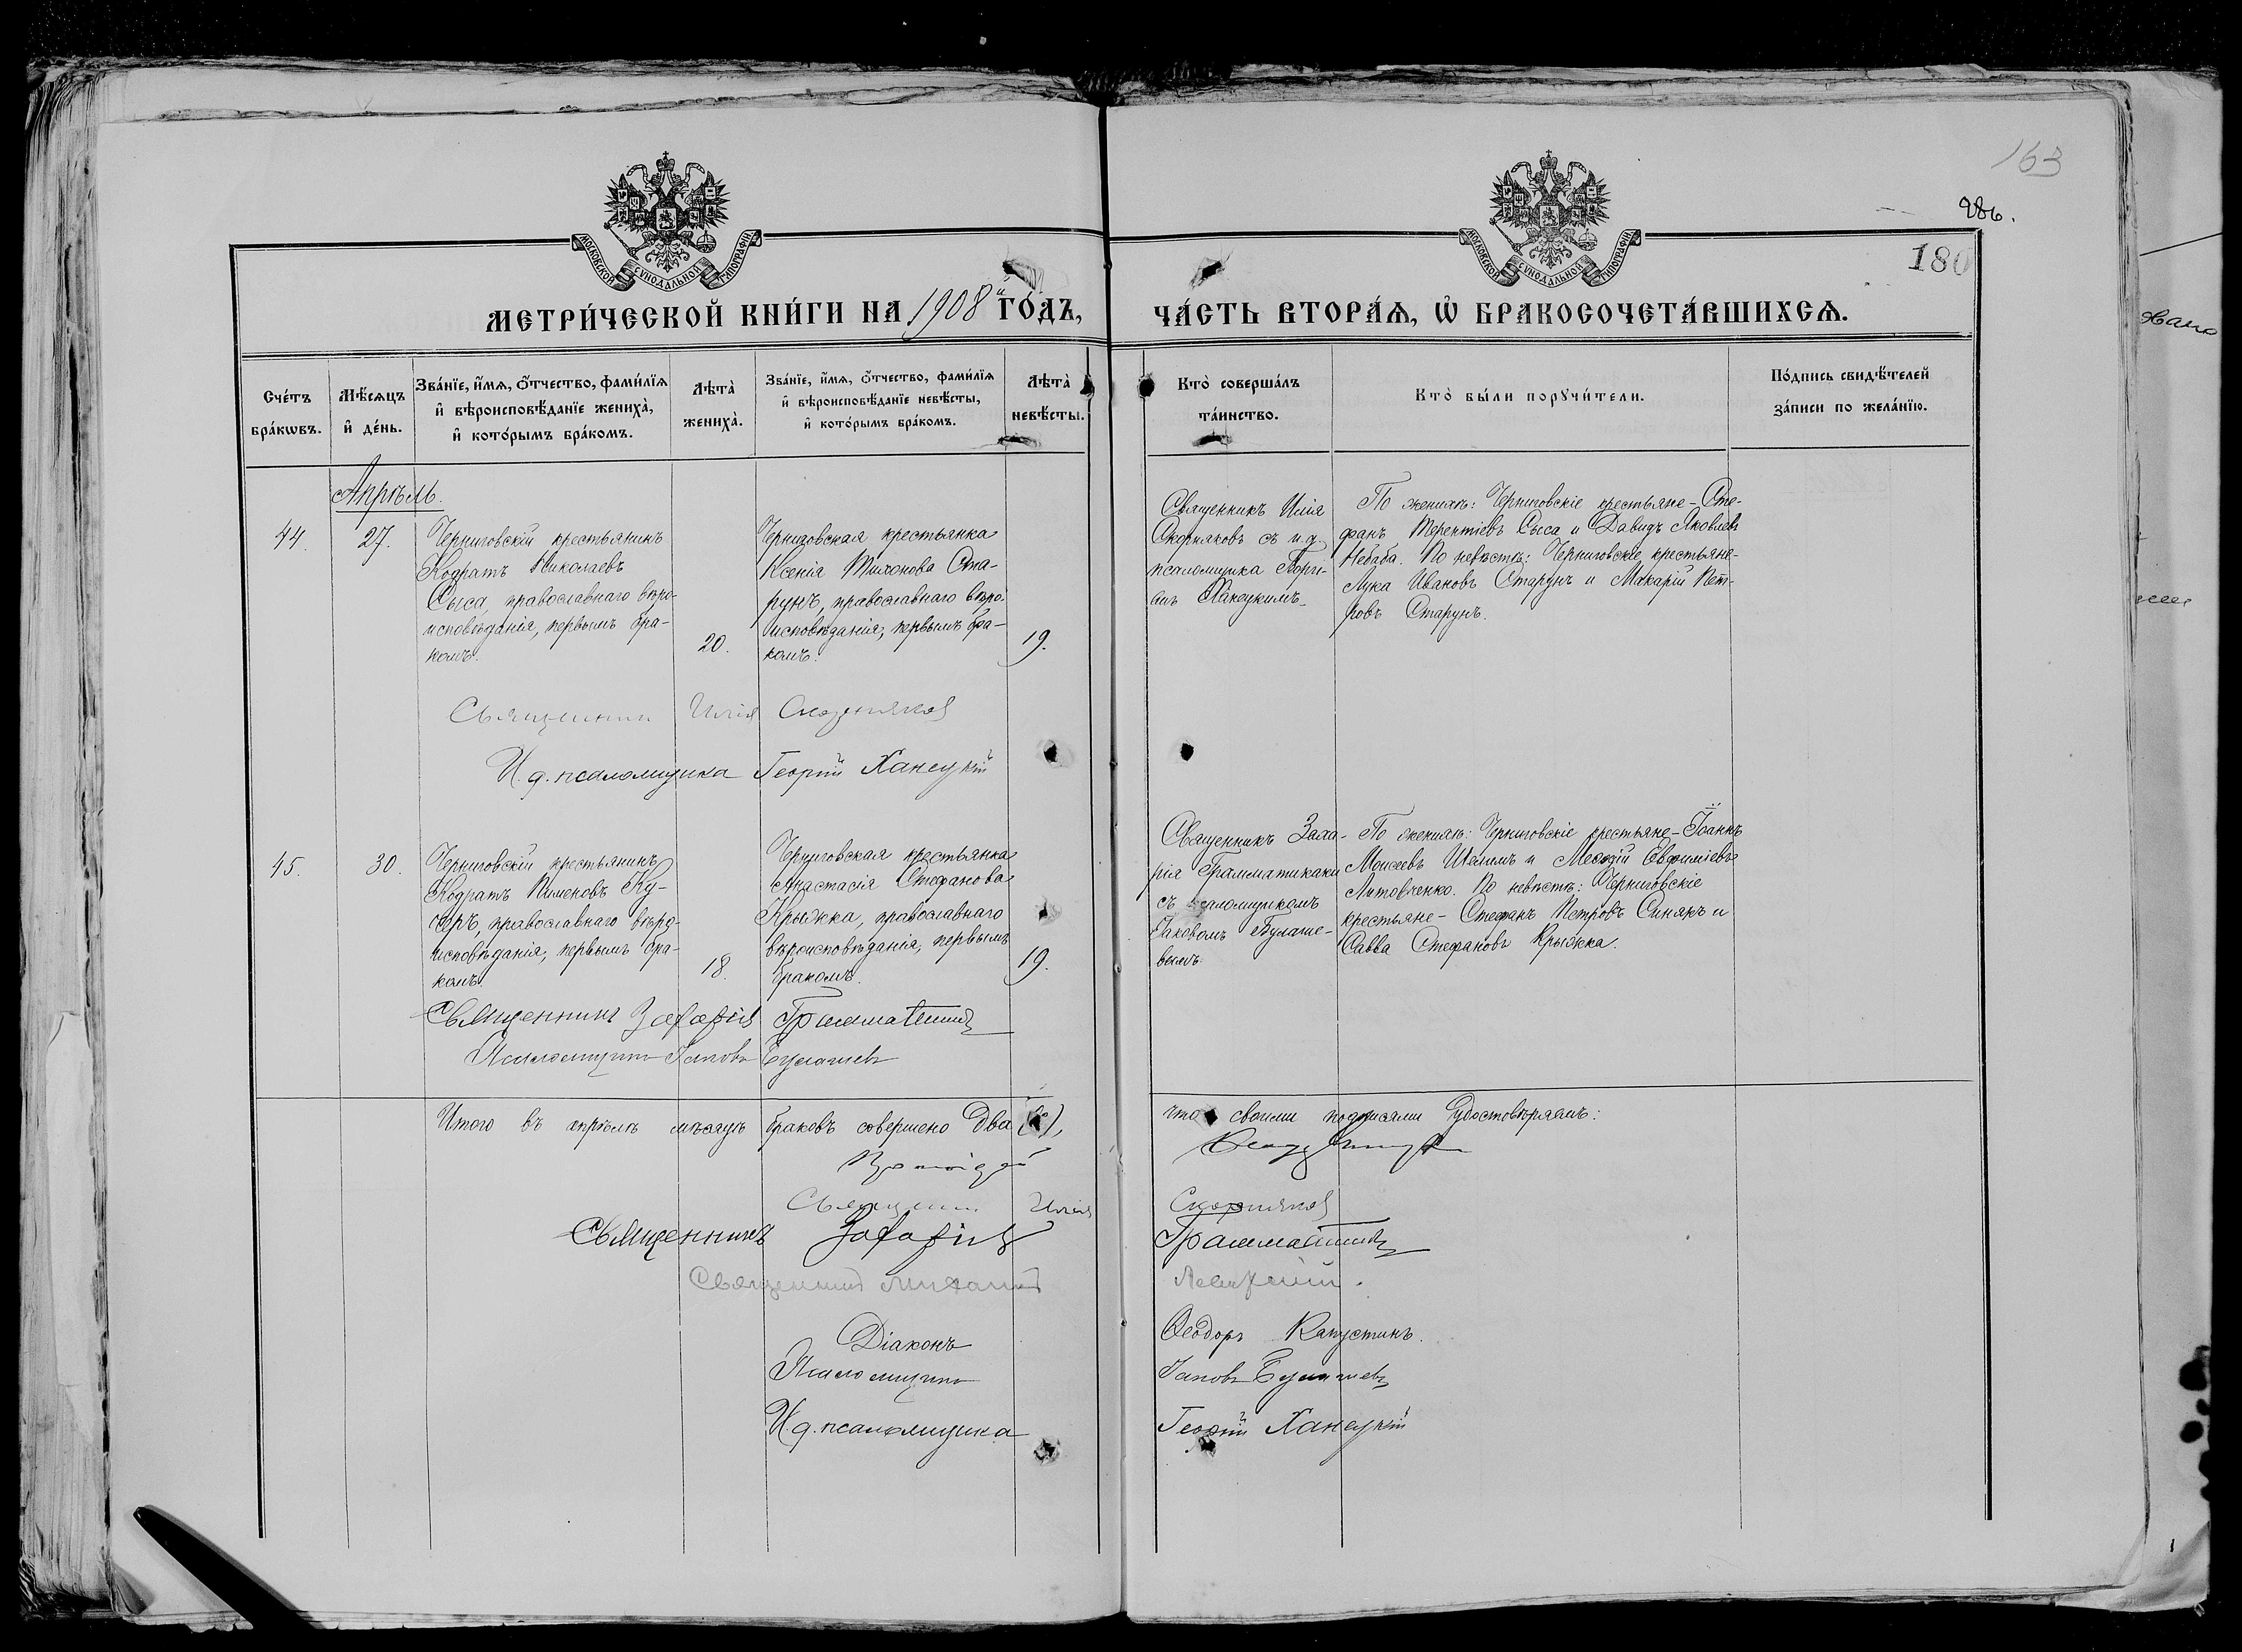 163
286.
180
МОСКОВСКОЙ СѴНОДАЛЬНОЙ ТИПОГРАФІИ
МОСКОВСКОЙ СѴНОДАЛЬНОЙ ТИПОГРАФІИ
МЕТРИ́ЧЕСКОЙ КНИ́ГИ НА 1908й ГО́ДЪ,
ЧА́СТЬ ВТОРА́Ѧ, Ѽ БРАКОСОЧЕТА́ВШИХСѦ.
Сче́тъ
бра́кѡвъ.
Мѣ́сѧцъ
и҆ де́нь.
Зва́нїе, и҆́мѧ, ѻ҆́тчество, фами́лїѧ
и҆ вѣроисповѣ́данїе жениха̀,
и҆ кото́рымъ бра́комъ.
Лѣта̀
жениха̀.
Зва́нїе, и҆́мѧ, ѻ҆́тчество, фами́лїѧ
и҆ вѣроисповѣ́данїе невѣ́сты,
и҆ кото́рымъ бра́комъ.
Лѣта̀
невѣ́сты.
Кто̀ соверша́лъ
та́инство.
Кто̀ бы́ли порꙋчи́тели.
По́дпись свидѣ́телей
за́писи по жела́нїю.
Апрѣль.
44.
27.
Черниговскій крестьянинъ
Кодратъ Николаевъ
Сыса, православнаго вѣро-
исповѣданія, первымъ бра-
комъ.
20.
Черниговская крестьянка
Ксенія Тихонова Ста-
рунъ, православнаго вѣро-
исповѣданія, первымъ бра-
комъ.
19.
Священникъ Илія
Скорняковъ съ и.д.
псаломщика
Ханецкимъ.
По женихѣ: Черниговскіе крестьяне - Сте-
фанъ Терентіевъ Сыса и Давидъ Яковлевъ
Небаба. По невѣстѣ: Черниговскіе крестьяне-
Лука Ивановъ Старунъ и Макарій Пет-
ровъ Старунъ.
Священникъ Илія Скорняковъ
И.д. псаломщика Георгій Ханецкій
45.
30.
Черниговскій крестьянинъ
Кодратъ Пименовъ Ку-
церъ, православнаго вѣро-
исповѣданія, первымъ бра-
комъ.
18.
Черниговская крестьянка
Анастасія Стефанова
Крыжка, православнаго
вѣроисповѣданія, первымъ
бракомъ.
19.
Священникъ Заха-
рія Грамматикаки
съ псаломщикомъ
Іаковомъ Булаше-
вымъ.
По женихѣ: Черниговскіе крестьяне - Іоаннъ
Моисеевъ и Евфиміевъ
Литовченко. По невѣстѣ: Черниговскіе
крестьяне - Стефанъ Петровъ Синякъ и
Савва Стефановъ Крыжка.
Священникъ Захарія
Псаломщикъ Іаковъ Булашевъ
Итого въ апрѣлѣ мѣсяцѣ браковъ совершено два (2),
что своими подписями удостовѣряемъ:
Священникъ Илія Скорняковъ
Священникъ Захарія
Священникъ Михаилъ
Діаконъ Ѳеодоръ Капустинъ.
Псаломщикъ Іаковъ Булашевъ
И.д. псаломщика Георгій Ханецкій